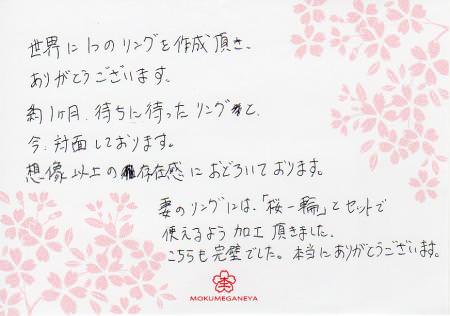 世界に1つのリングを作成頂き、
ありがとうございます。
約1ヶ月、待ちに待ったリングと、
今、対面しております。
想像以上の存在感におどろいております。
妻のリングには、「桜一輪」とセットで
使えるよう加工頂きました。
こちらも完璧でした。本当にありがとうございます。
MOKUMEGANEYA